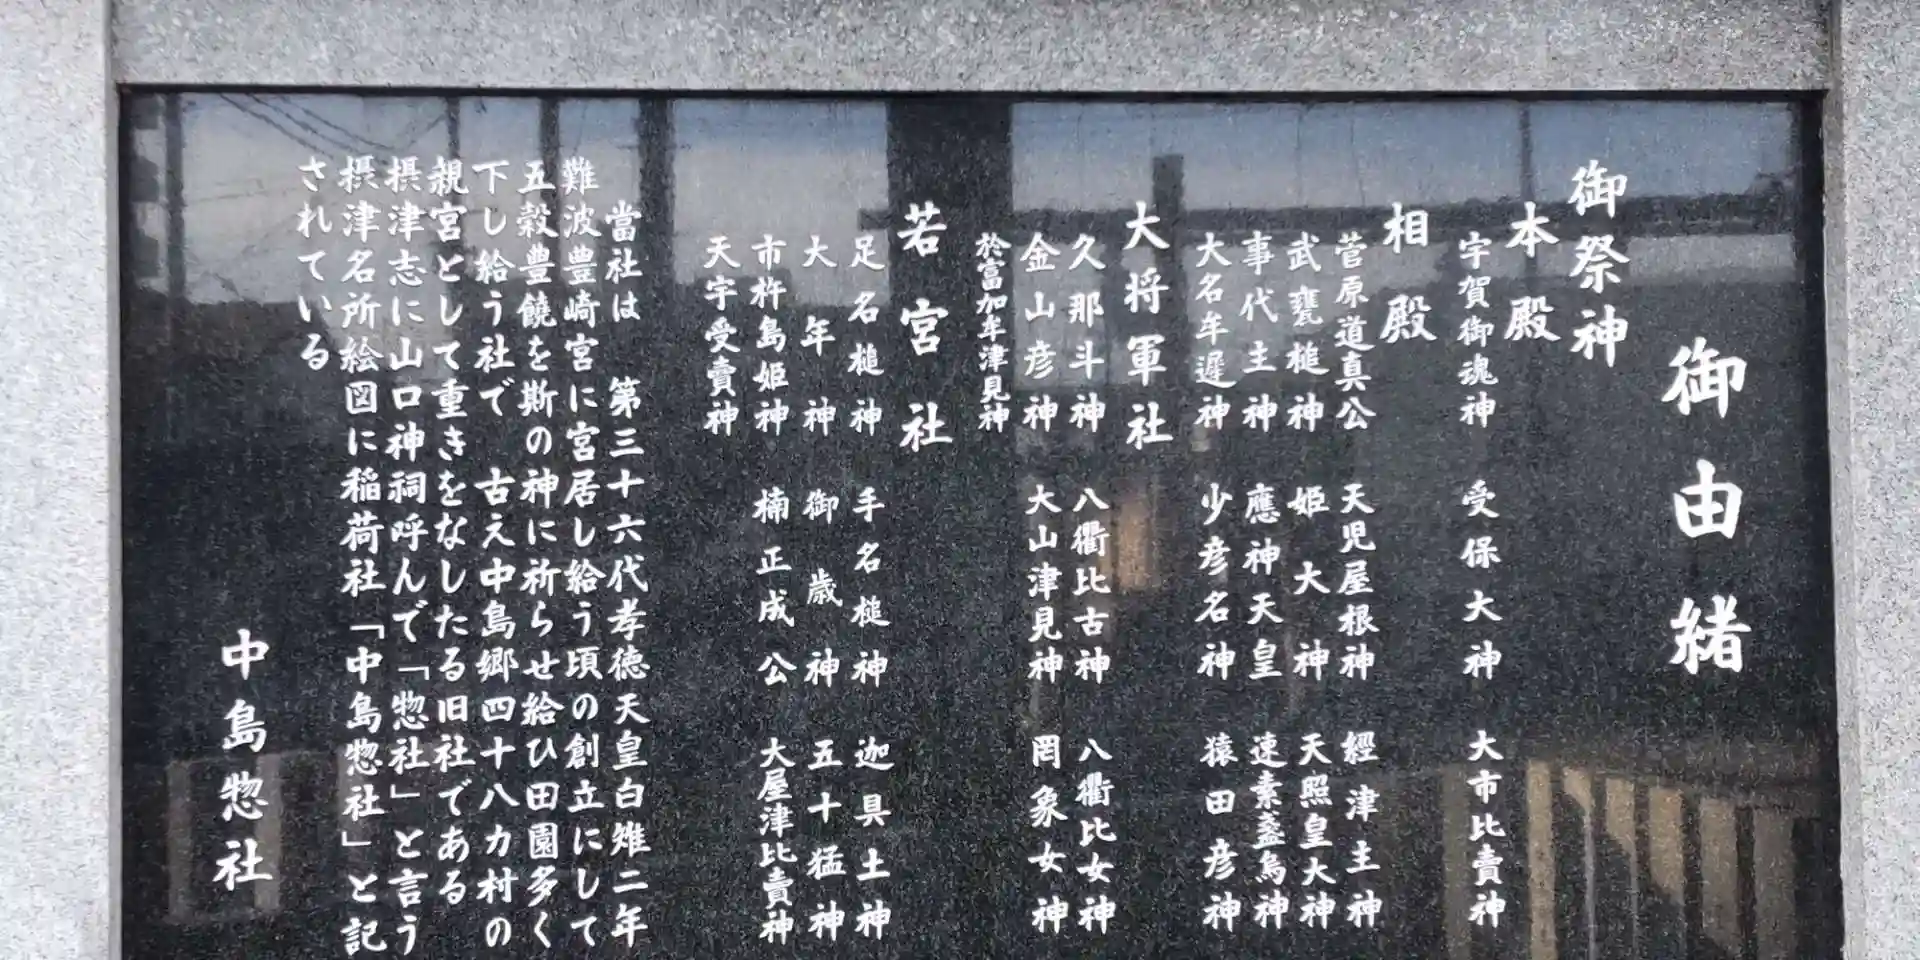 御由緒
御祭神
本殿
宇賀御魂神　受保大神　大市比賣神
相殿
菅原道真公　天児屋根神　經津主神
武甕槌神　姫大神　天照皇大神
事代主神　應神天皇　速素盞烏神
大名牟遅神　少彦名神　猿田彦神
大将軍社
久那斗神　八衢比古神　八衢比女神
金山彦神　大山津見神　罔象女神
於富加牟津見神
若宮社
足名槌神　手名槌神　迦具土神
大年神　御歳神　五十猛神
市杵島姫神　楠正成公　大屋津比賣神
天宇受賣神
當社は　第三十六代孝徳天皇白雉二年
難波豊崎宮に宮居し給う頃の創立にして
五穀豊饒を斯の神に祈らせ給ひ田園多く
下し給う社で　古え中島郷四十八カ村の
親宮として重きをなしたる旧社である
摂津志に山口神祠呼んで「惣社」と言う
摂津名所絵図に稲荷社「中島惣社」と記
されている
中島惣社